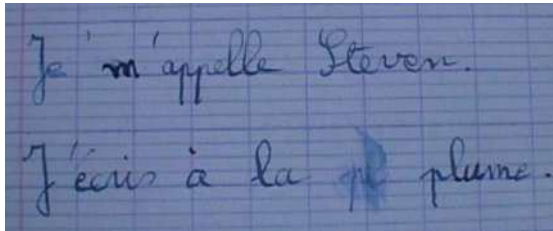 Je' m'appelle Steven.
J'écris à la pl plume.